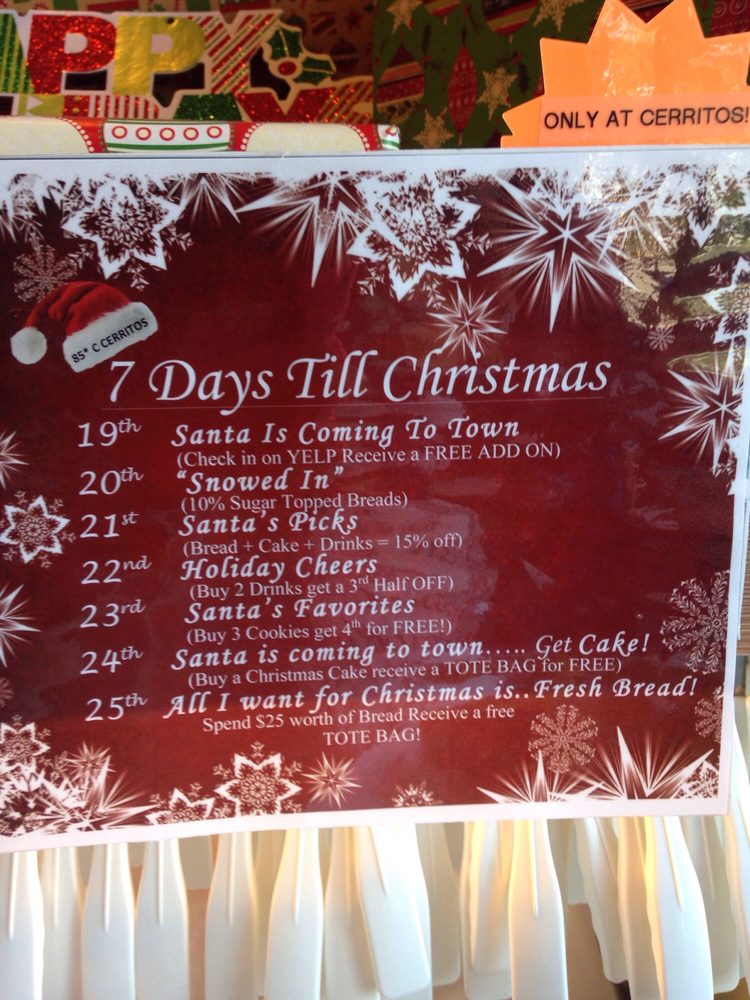 APPY
ONLY AT CERRITOS!
85* C CERRITOS
7 Days Till Christmas
19th Santa Is Coming To Town
(Check in on YELP Receive a FREE ADD ON)
20th "Snowed In"
(10% Sugar Topped Breads)
21st Santa's Picks
(Bread + Cake + Drinks = 15% off)
22nd Holiday Cheers
(Buy 2 Drinks get a 3rd Half OFF)
23rd Santa's Favorites
(Buy 3 Cookies get 4th for FREE!)
24th Santa is coming to town..... Get Cake!
(Buy a Christmas Cake receive a TOTE BAG for FREE)
25th All I want for Christmas is..Fresh Bread!
Spend $25 worth of Bread Receive a free
TOTE BAG!